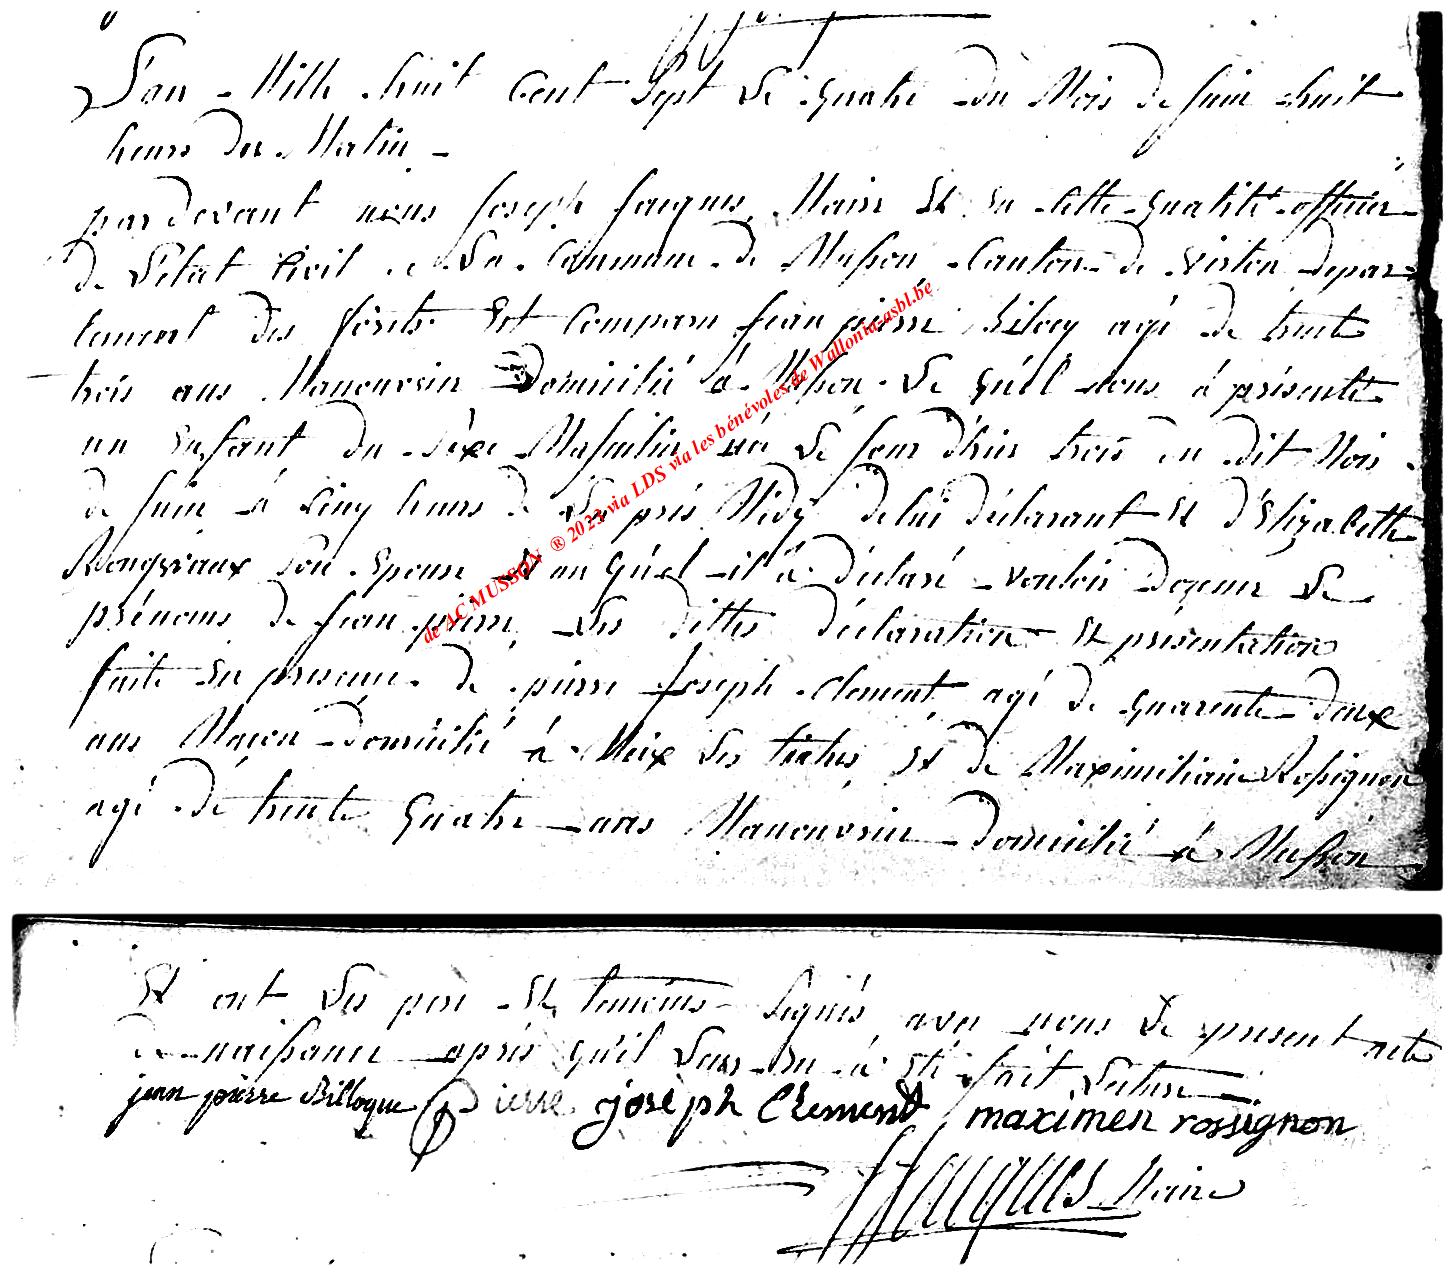 L'an Mille huit Cent Sept Le quatre du Mois De juin huit
heures Du Matin
pardevant nous joseph jacques Maire Et En Cette qualité officier
de L'état Civil de La Commune de Musson Canton de Virton depar
tement des forêts Est Comparu jean pierre age de trente
trois ans Manouvrier Domicilié á Musson Le quel nous á présenté
un Enfant du Séxe Masculin né Le jour d'hier trois du dit Mois
de juin á Cinq heures de L'a près Midy de lui déclarant Et d'Elizabeth
Rongvaux Son Epouse Et au quel il á déclaré vouloir Donner Le
prénoms de jean pierre, Les dittes déclaration Et présentation
faite En présence de pierre joseph Clement agé de quarente deux
ans Maçon domicilié á Meix Le tiche Et de Maximiliain Rossignon
agé de trente quatre ans Manouvrier Domicilié á Musson
de AC MUSSON ® 2023 via LDS via les bénévoles de Wallonia-asbl.be
Et ont Les pere Et temoins Signés avec nous Le present acte
de naissance après qu'il Leur En á été fait Lecture
jean pierre Billoque Pierre joseph Clement maximen rossignon
JJacques Maire